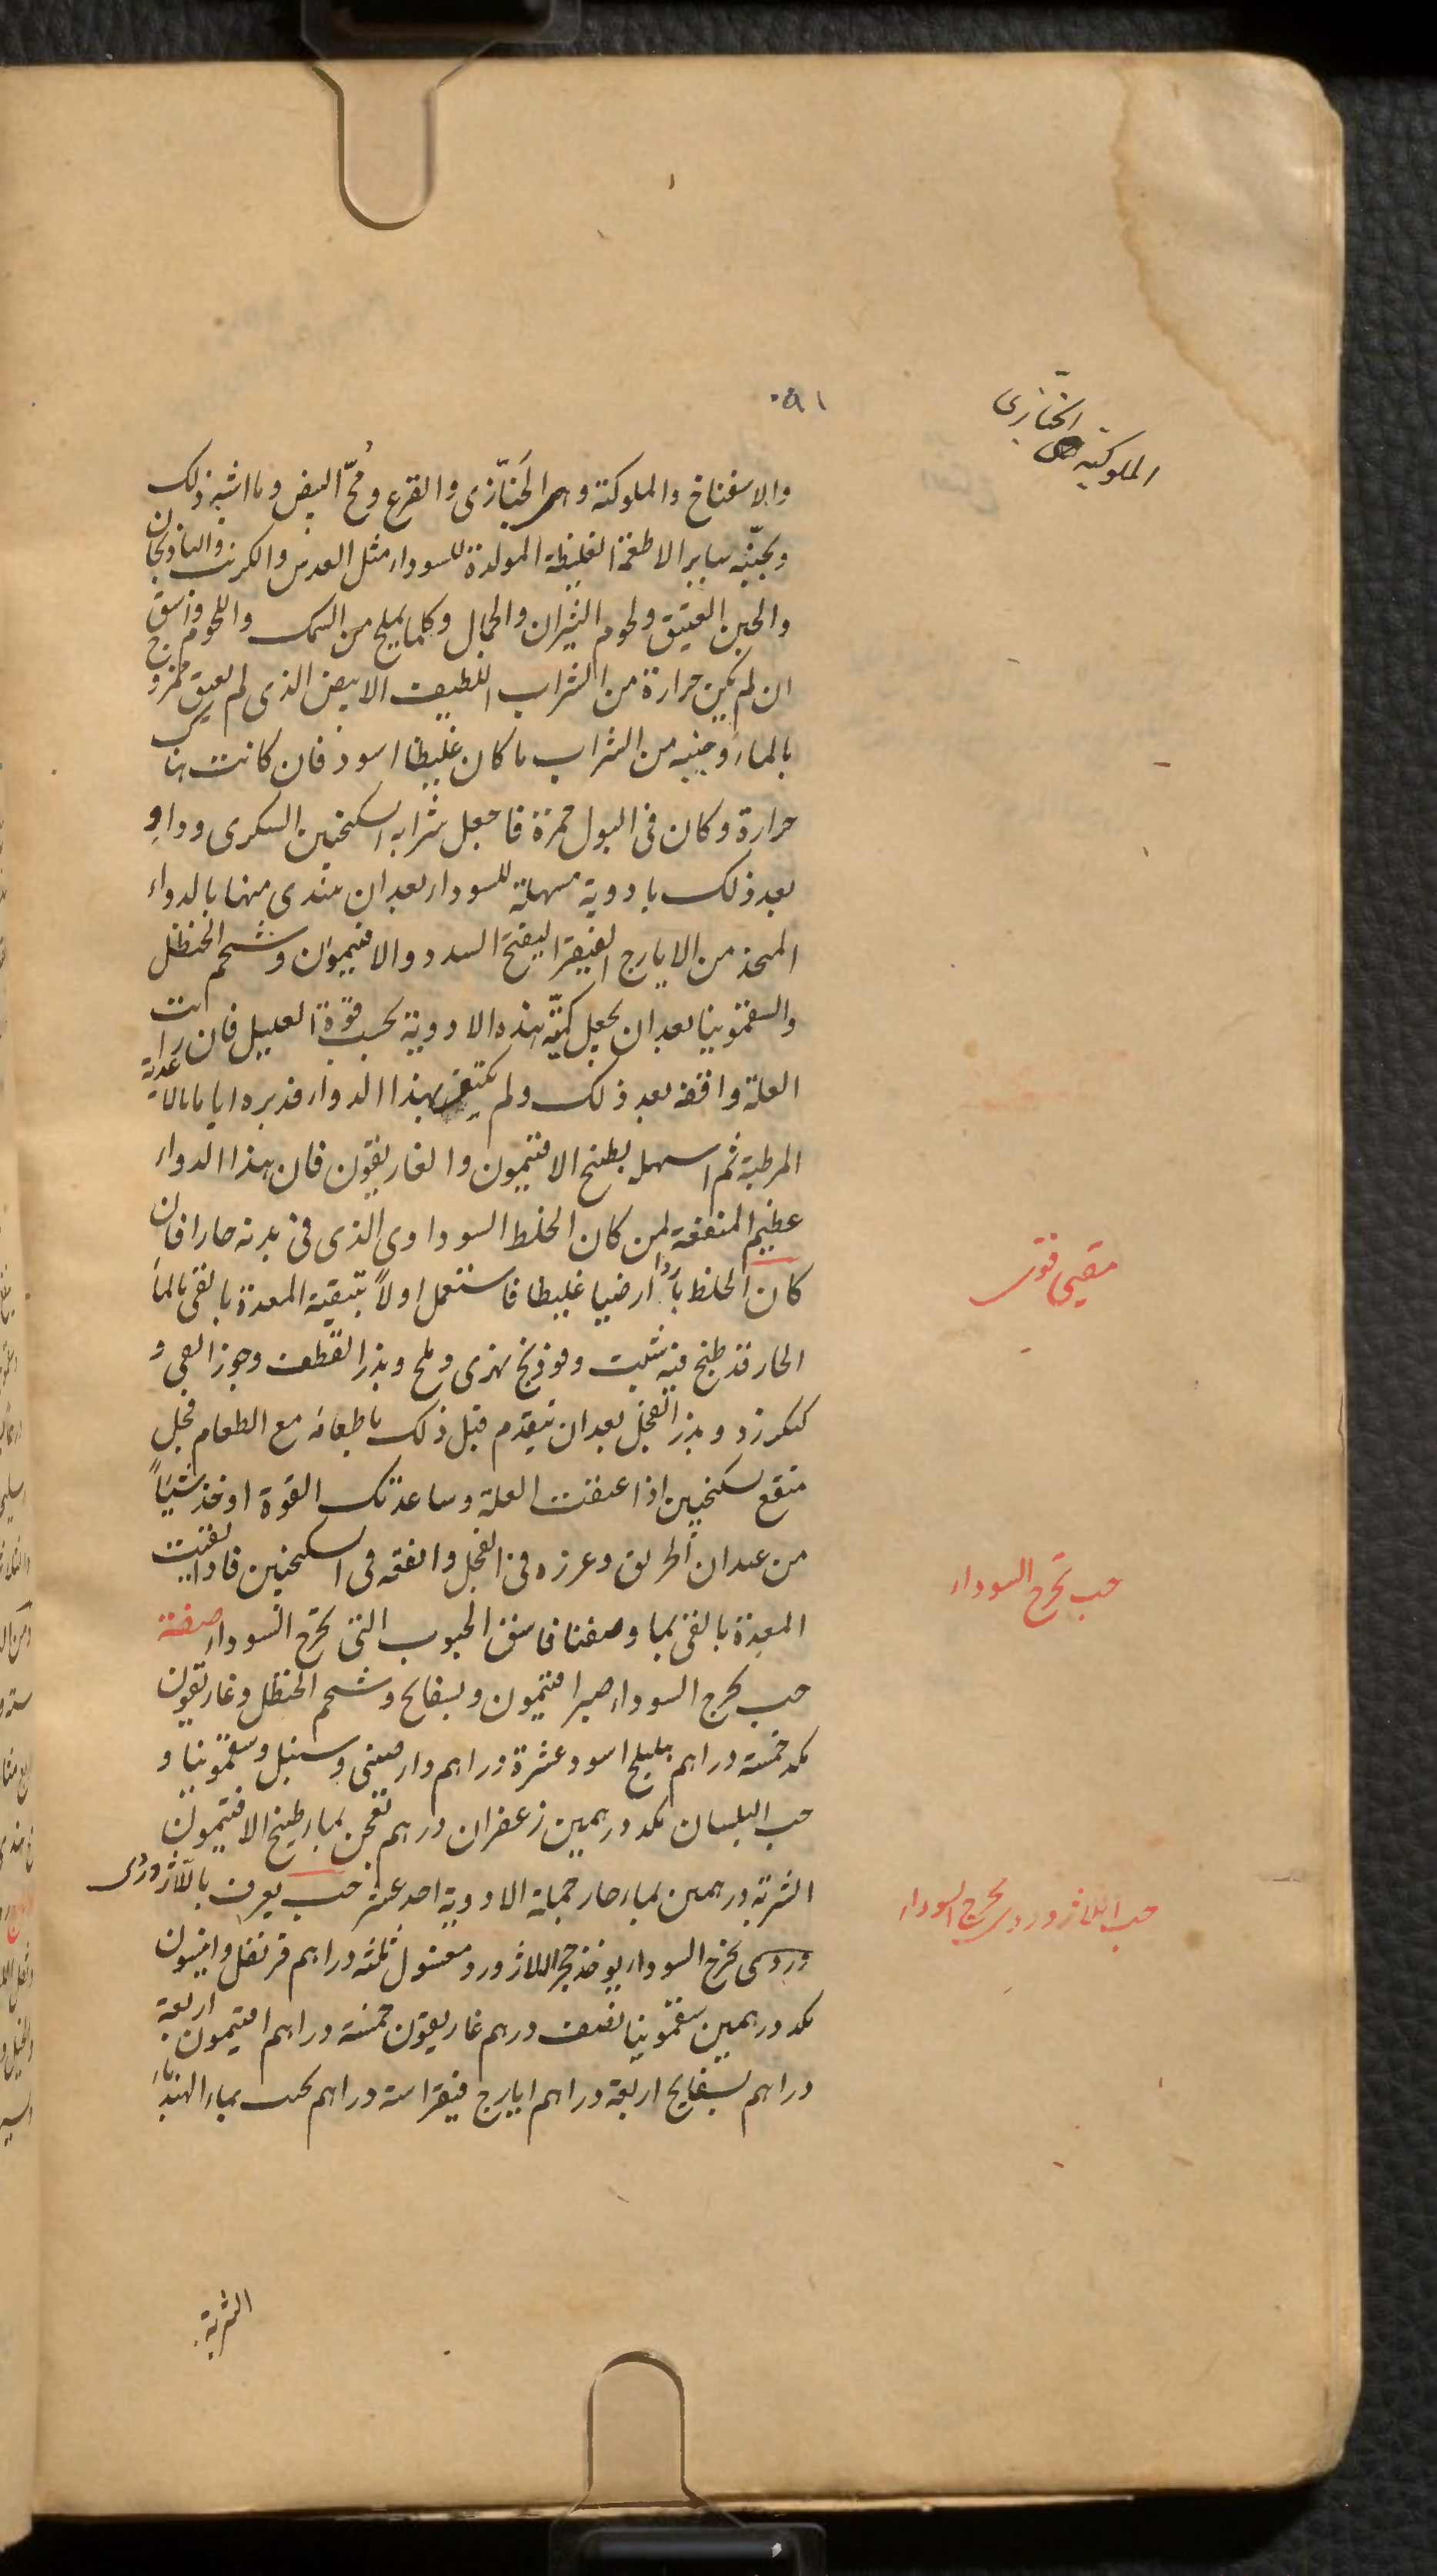 الملوكية هى الخبّازى
والاسفناخ والملوكية وهى الخُبّازى والقرع ومُحّ البيض وما اشبه ذلك
ويجنبه ساير الاطعمة الغليظة المولدة للسوداء مثل العدس والكرنب والباذنجان
والجبن العتيق ولحوم الثيران والجمال وكلما يملح من السمك واللحوم واسقه
ان لم يكن حرارة من الشراب اللطيف الابيض الذى لم يعتق ممزوج
بالماء وجنبه من الشراب ما كان غليظا اسود فان كانت هناك
حرارة وكان فى البول حمرة فاجعل شرابه السكنجبين السكرى وداو
بعد ذلك بادوية مسهلة للسوداء بعد ان تبتدى منها بالدواء
المتخذ من الايارج الفيقرا ليفتح السدد والافتيمون وشحم الحنظل
والسقمونيا بعد ان يجعل كميّة هذه الادوية بحسب قوة العليل فان رايت
العلة واقفة بعد ذلك ولم يكتف بهذا الدواء فدبره اياما بالاغذية
المرطبة ثم اسهله بطبخ الافتيمون والغاريقون فان هذا الدواء
عظيم المنفعة لمن كان الخلط السوداوى الذى فى بدنه حارا فان
كان الخلط باردا ارضيا غليظا فاستعمل اولاً تنقية المعدة بالقى بالماء
الحار قد طبخ فيه شبت وفوذنج نهرى وملح وبزر القطف وجوز القى و
كنكرزد وبزر الفجل بعد ان يتقدم قبل ذلك باطعامه مع الطعام فجل
منقع بسكنجبين اذا عنفت العلة وساعدتك القوة او تخذ شيئاً
من عيدان الخربق وغرزه فى الفجل وانقعه فى السكنجبين فاذا نقيت
المعدة بالقى بما وصفنا فاسق الحبوب التى تخرج السوداء صفة
حب يخرج السوداء صبر افتيمون وبسفايج وشحم الحنظل وغاريقون
مكد خمسة دراهم هليلج اسود عشرة دراهم دارصينى وسنبل وسقمونيا و
حب البلسان مكد درهمين زعفران درهم تعجن بماء طبيخ الافتيمون
الشربة درهمين بماء حار جملة الادوية احد عشر حب يعرف باللاژوردى
وردى يخرج السوداء يوخذ حجر اللاژورد مغسول ثلثة دراهم قرنفل وانيسون
مكد درهمين سقمونيا نصف درهم غاريقون خمسة دراهم افتيمون اربعة
دراهم بسفايج اربعة دراهم ايارج فيقرا ستة دراهم يحبب بماء الهندباء
مقيى قوى
حب يخرج السوداء
حب اللاژوردى يخرج السوداء
الشربة